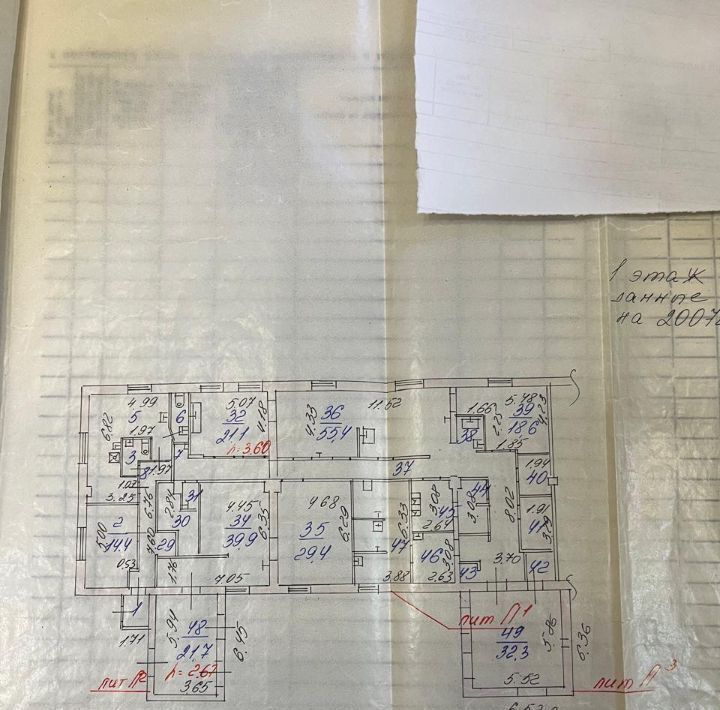 1 этаж
данные
на 2007г
4.99
5
6.82
1.97
3
6
7
8
1.97
1.02
3.25
5.07
32
21.1
4.18
h=3.60
36
55,4
4.33
11.52
37
1.66
38
2.25
5.48
39
18.6
4.23
1.85
1.94
40
2
14.4
5.00
0.53
6.76
7.60
2.84
31
30
29
1.76
4.45
34
39,9
6.35
7.05
4.68
35
29.4
6.29
6.33
47
3.88
3.08
45
2.64
46
3.08
2.63
44
3.08
43
8.02
3.70
1.91
41
3.79
42
1
1.71
5.94
48
21,7
h=2.67
3.65
6.45
лит П2
лит П1
49
32.3
5.86
6.36
5.52
лит П3
6.52